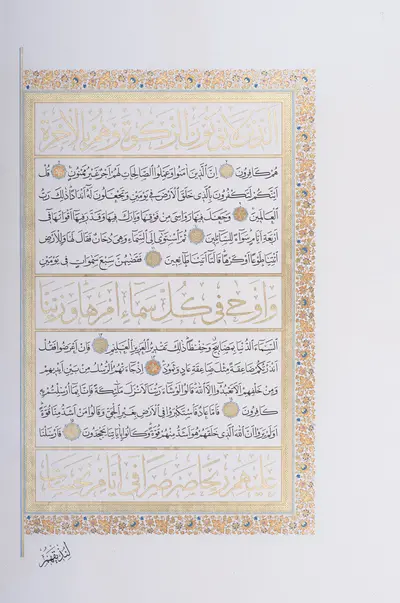 الذين لا يؤتون الزكوة وهم بالآخرة
هم كافرون ان الذين آمنوا وعملوا الصالحات لهم اجر غير ممنون قل
ائنكم لتكفرون بالذي خلق الارض في يومين وتجعلون له اندادا ذلك رب
العالمين وجعل فيها رواسي من فوقها وبارك فيها وقدر فيها اقواتها في
اربعة ايام سواء للسائلين ثم استوى الى السماء وهي دخان فقال لها وللارض
ائتيا طوعا او كرها قالتا اتينا طائعين فقضيهن سبع سموات في يومين
واوحى في كل سماء امرها وزينا
السماء الدنيا بمصابيح وحفظا ذلك تقدير العزيز العليم فان اعرضوا فقل
انذرتكم صاعقة مثل صاعقة عاد وثمود اذ جاءتهم الرسل من بين ايديهم
ومن خلفهم الا تعبدوا الا الله قالوا لو شاء ربنا لانزل ملئكة فانا بما ارسلتم به
كافرون فاما عاد فاستكبروا في الارض بغير الحق وقالوا من اشد منا قوة
اولم يروا ان الله الذي خلقهم هو اشد منهم قوة وكانوا باياتنا يجحدون فارسلنا
عليهم ريحا صرصرا في ايام نحسات
لنذيقهم